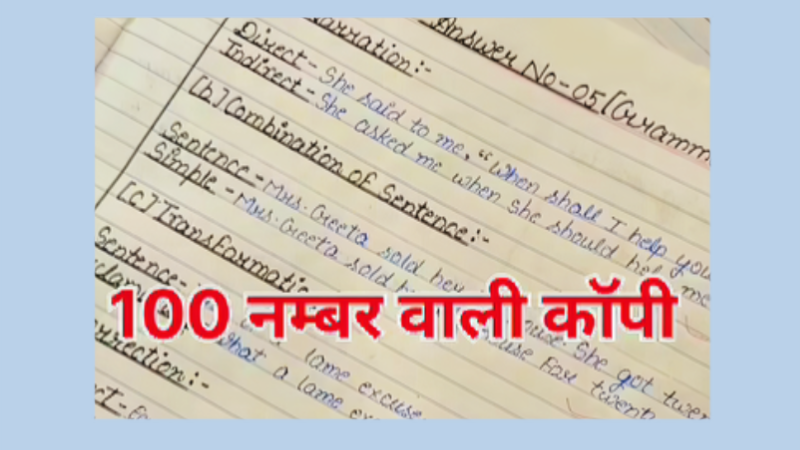 Answer No-05 [Gramm
arration:-
Direct - She said to me, "When shall I help you
Indirect - She asked me when she should help me
[b] Combination of Sentence:-
Sentence - Mrs. Geeta sold her house She got twen
Simple - Mrs. Geeta sold house for twent
[c] Transformatio
Sentence- a lame excuse.
what a lame ex
rrection:-
100 नम्बर वाली कॉपी